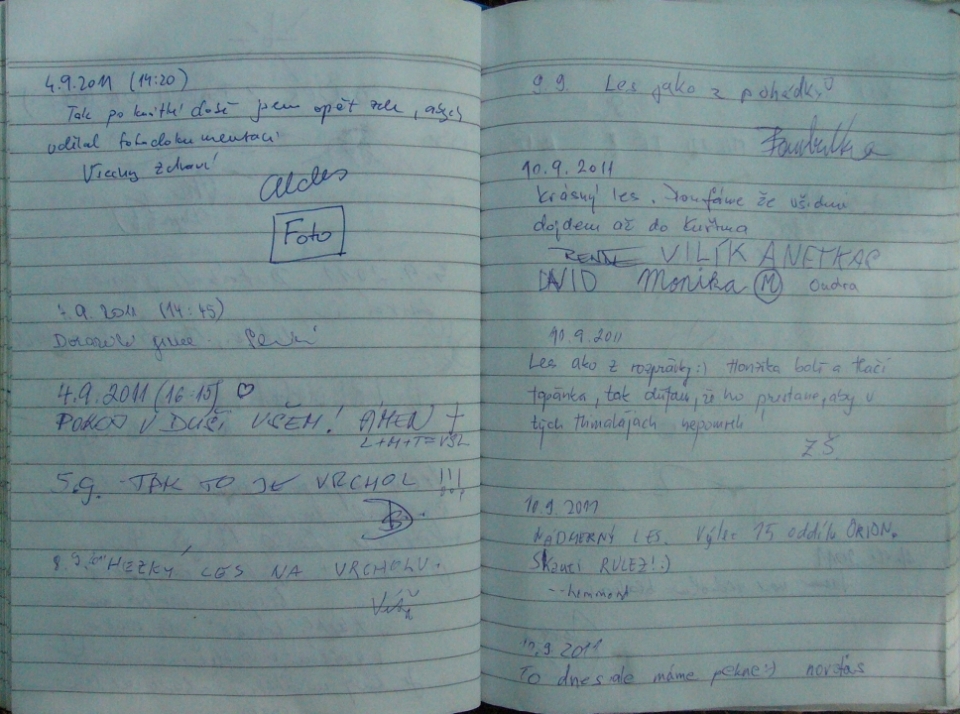 4.9.2011 (14:20)
Tak po krátké době jsem opět zde, abych
udělal fotodokumentaci
Všechny zdraví
Foto
4.9.2011 (14:45)
Dorazili jsme.
4.9.2011 (16:15) ♡
POKOJ V DUŠI VŠEM! AMEN †
L+M+T=VŠL
5.9. TAK TO JE VRCHOL !!!
HEZKÝ LES NA VRCHOLU.
9.9. Les jako z pohádky
10.9.2011
Krásný les. Doufáme že
dojdem až do
VILÍK ANETKA
DAVID Monika M Ondra
10.9.2011
Les ako z rozprávky:) Honzíka bolí a tlačí
topánka, tak dúfam, že ho prestane, aby v
tých Himalájach nepomrel
ZŠ
10.9.2011
NÁDHERNÝ LES. Výlet 15 oddílu ORION.
Skauti RULEZ!:)
10.9.2011
To dnes ale máme pekne:)